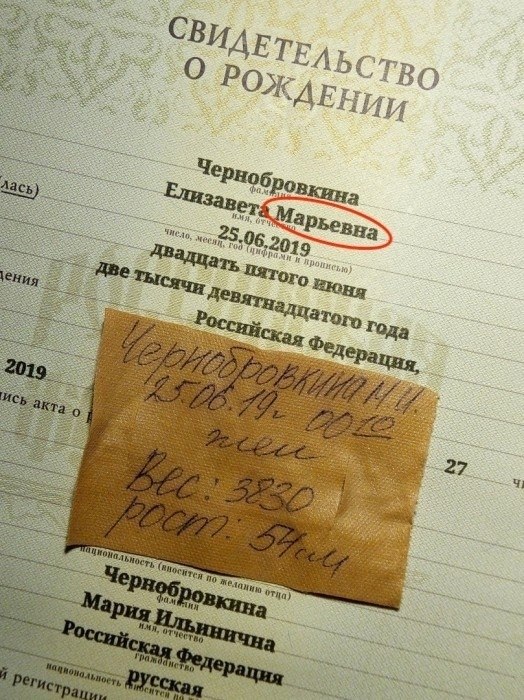 СВИДЕТЕЛЬСТВО
О РОЖДЕНИИ
Чернобровкина
фамилия
лась)
Елизавета Марьевна
имя, отчество
25.06.2019
число, месяц, год (цифрами и прописью)
двадцать пятого июня
две тысячи девятнадцатого года
дения
Российская Федерация,
2019
пись акта о р
27
Чернобровкина М.И.
25.06.19г 00 10
жен
Вес: 3830
рост: 54 см
национальность (вносится по желанию отца)
Чернобровкина
фамилия
Мария Ильинична
имя, отчество
Российская Федерация
гражданство
русская
национальность (вносится по
й регистрации